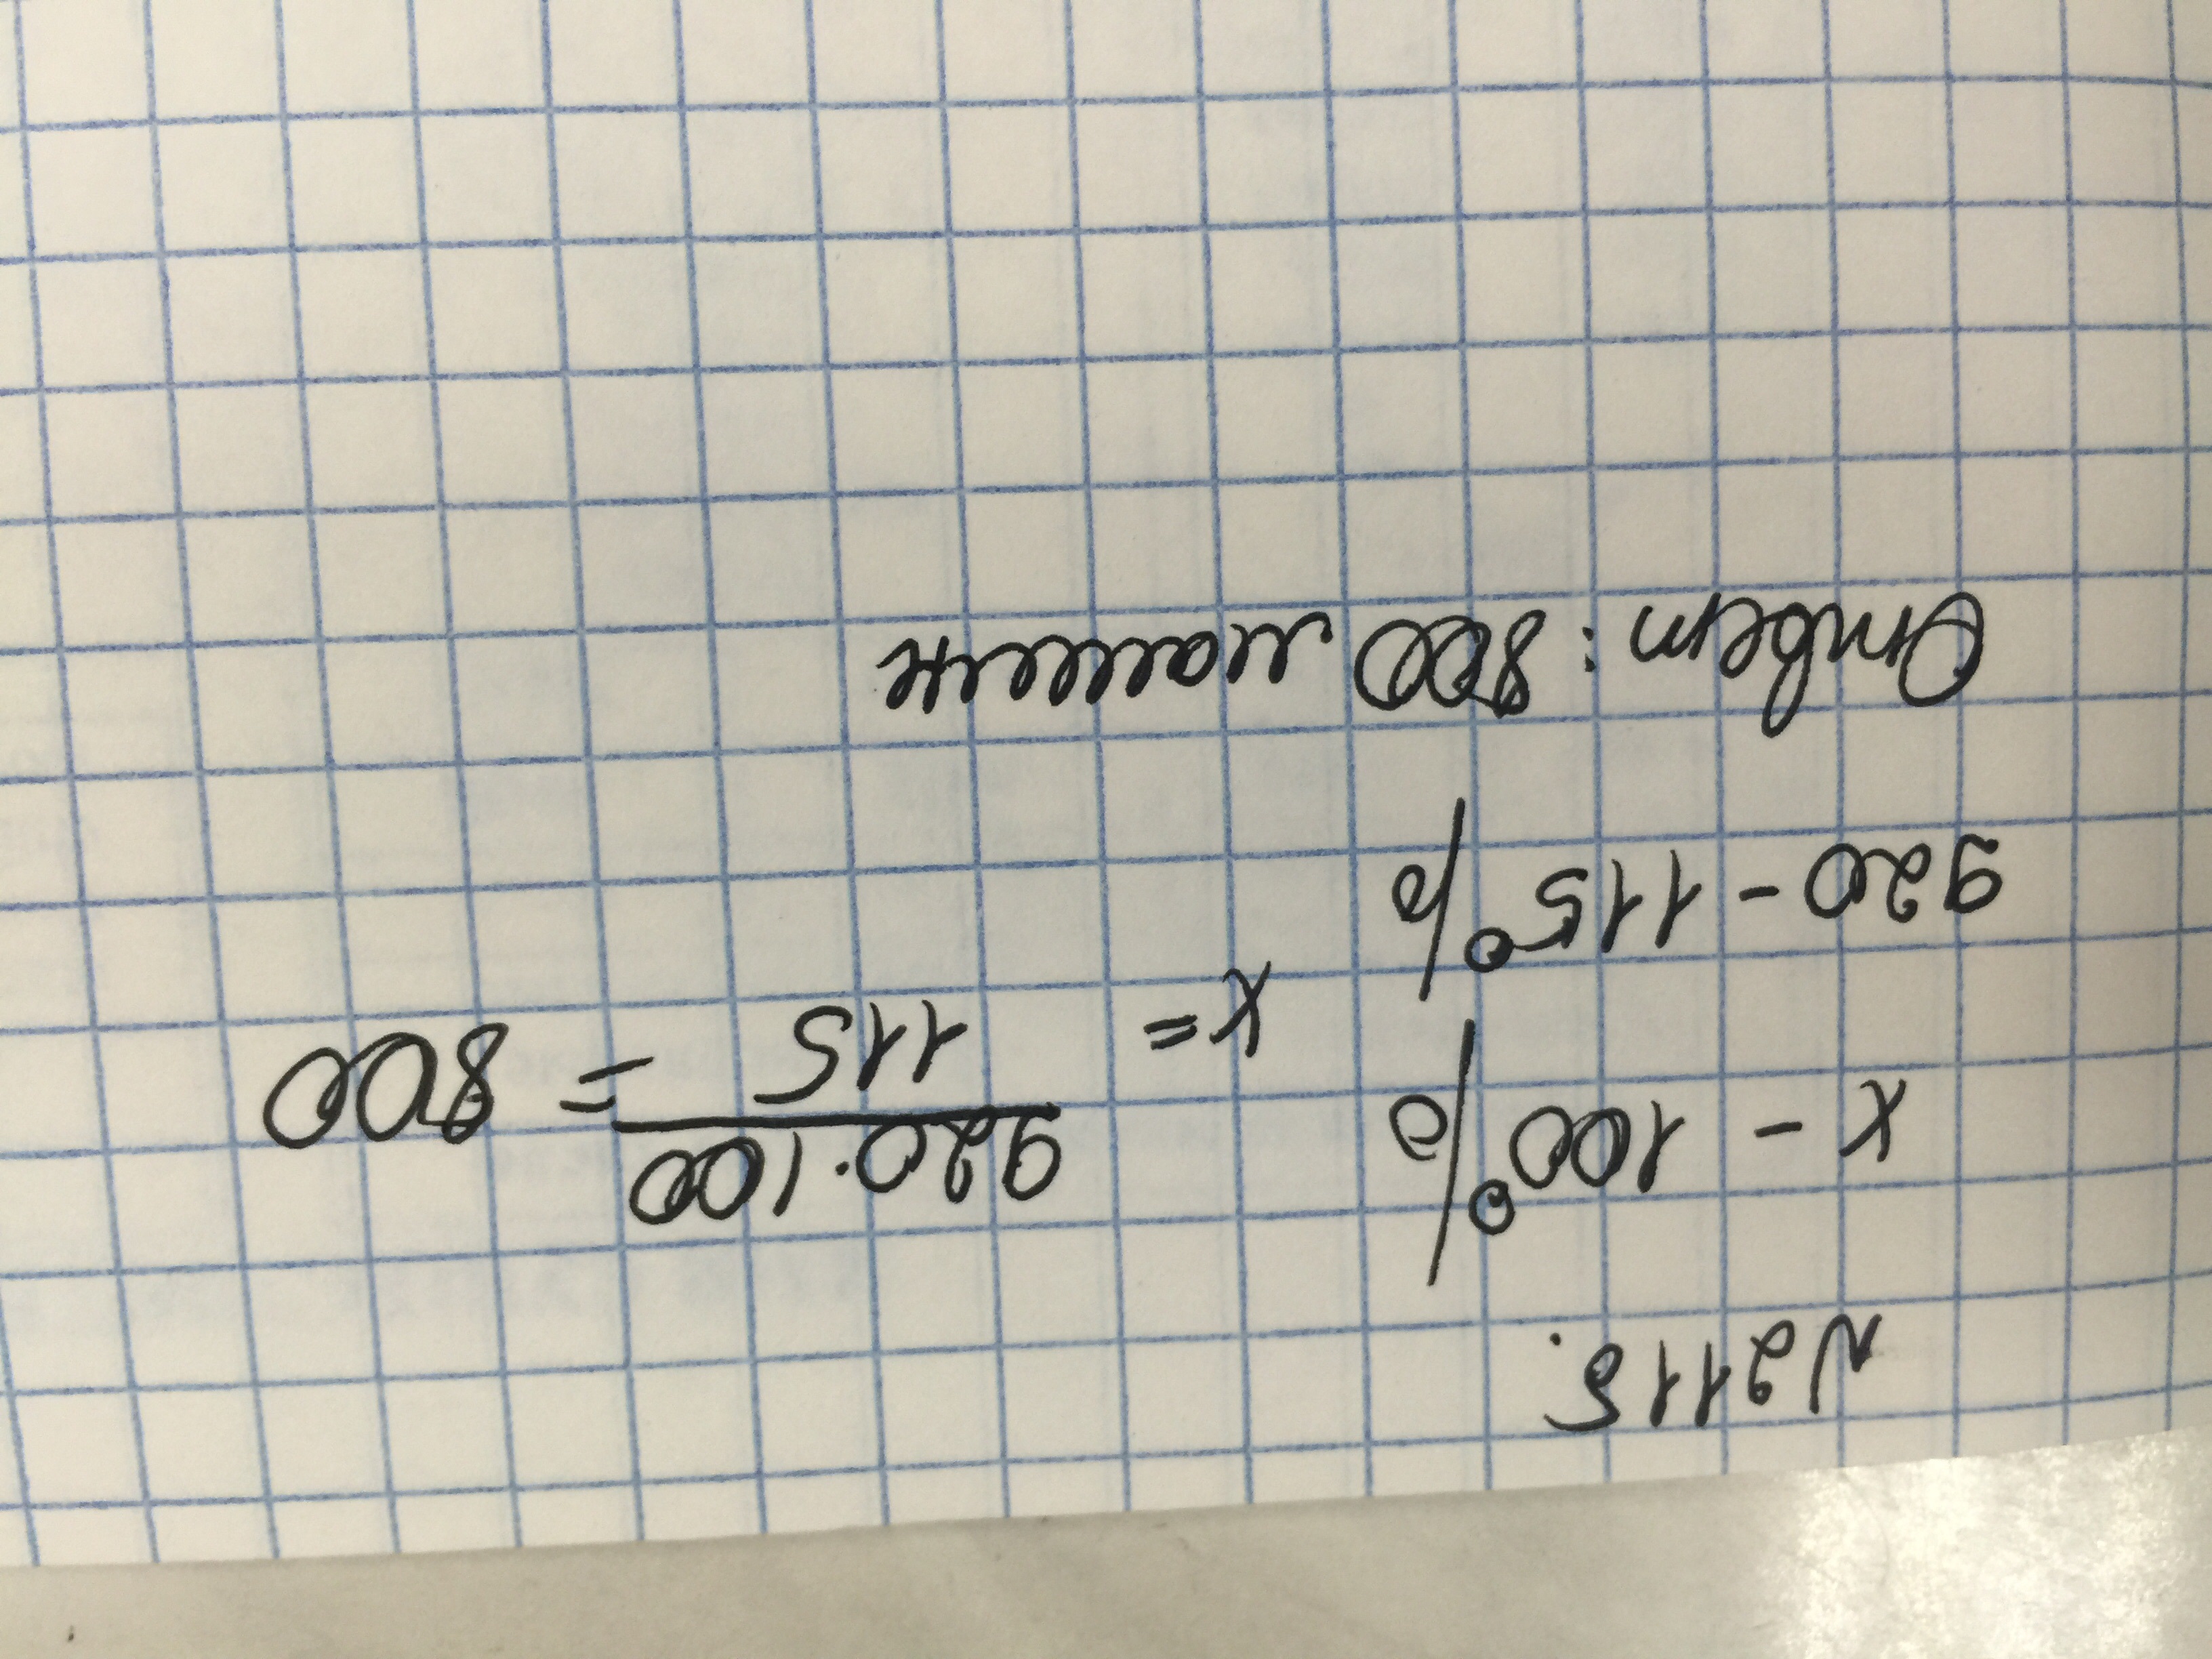 №2115.
x - 100%
920 - 115%
x = 920·100/115 = 800
Ответ: 800 машин